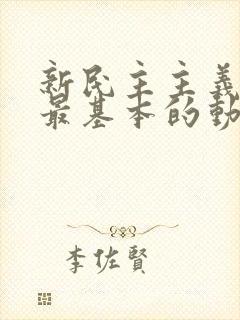 新民主主義
最基本的動
李佐賢